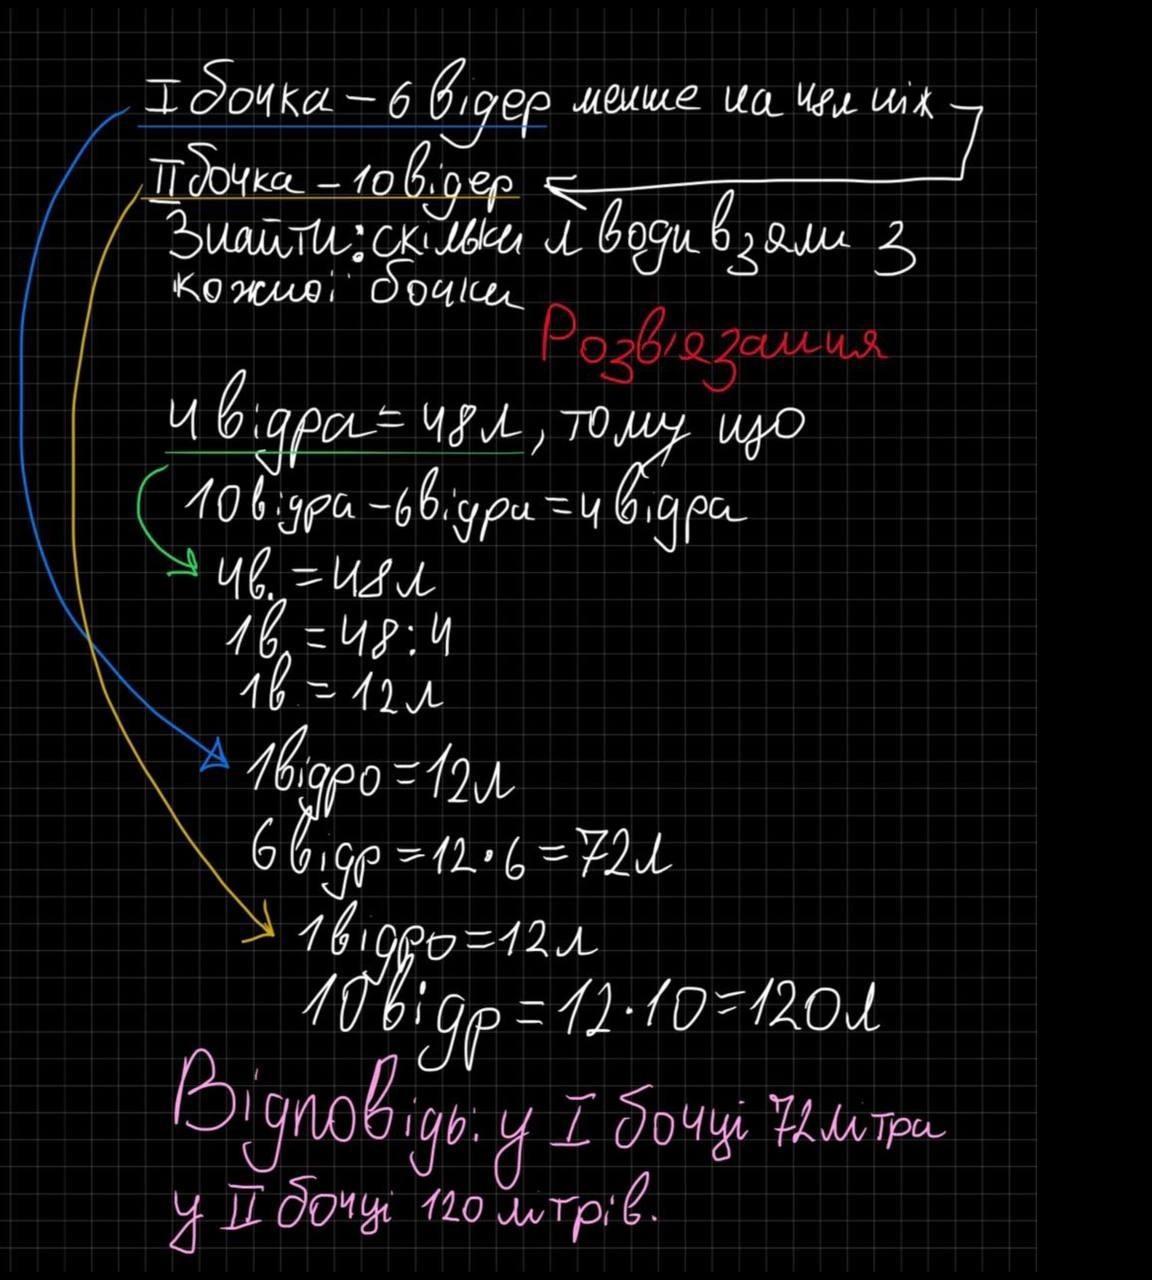 I бочка – 6 відер менше на 48л ніж
II бочка – 10 відер
Знайти: скільки л води взяли з
кожної бочки
Розв'язання
4 відра = 48л, тому що
10 відра – 6 відра = 4 відра
4в. = 48л
1в. = 48:4
1в = 12л
1 відро = 12л
6 відр = 12·6 = 72л
1 відро = 12л
10 відр = 12·10 = 120л
Відповідь: у I бочці 72 літра
у II бочці 120 літрів.